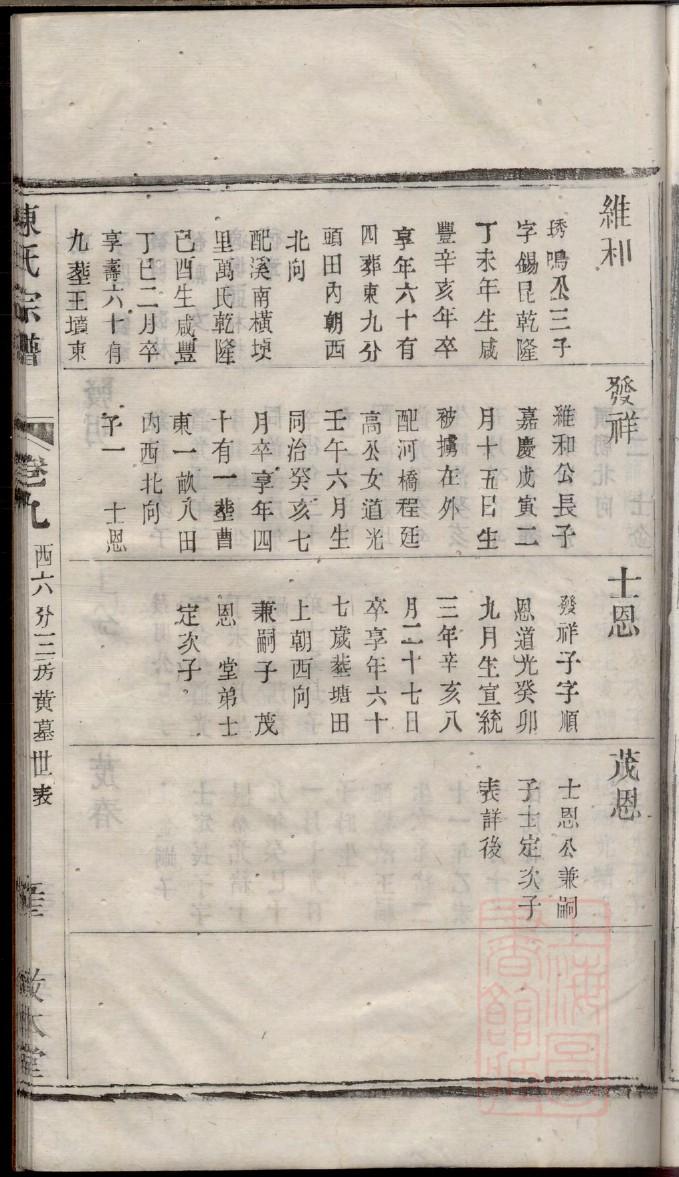 維和
琇鳴公三子
字錫昆乾隆
丁未年生咸
豐辛亥年卒
享年六十有
四葬東九分
頭田內朝西
北向
配溪南橫埂
里萬氏乾隆
己酉生咸豐
丁巳二月卒
享壽六十有
九塟王墳東
發祥
維和公長子
嘉慶戊寅二
月十五日生
被擄在外
配河橋程廷
高公女道光
壬午六月生
同治癸亥七
月卒享年四
十有一塟曹
東一畝八田
內西北向
子一 士恩
士恩
發祥子字順
恩道光癸卯
九月生宣統
三年辛亥八
月二十七日
卒享年六十
七歲塟塘田
上朝西向
兼嗣子 茂
恩 堂弟士
定次子
茂恩
士恩公兼嗣
子士定次子
表詳後
陳氏宗譜
卷九
西六分三房黃墓世表
敦本堂
上海圖書館藏